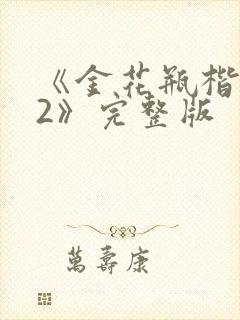 《金花瓶楷
2》完整版
萬壽康